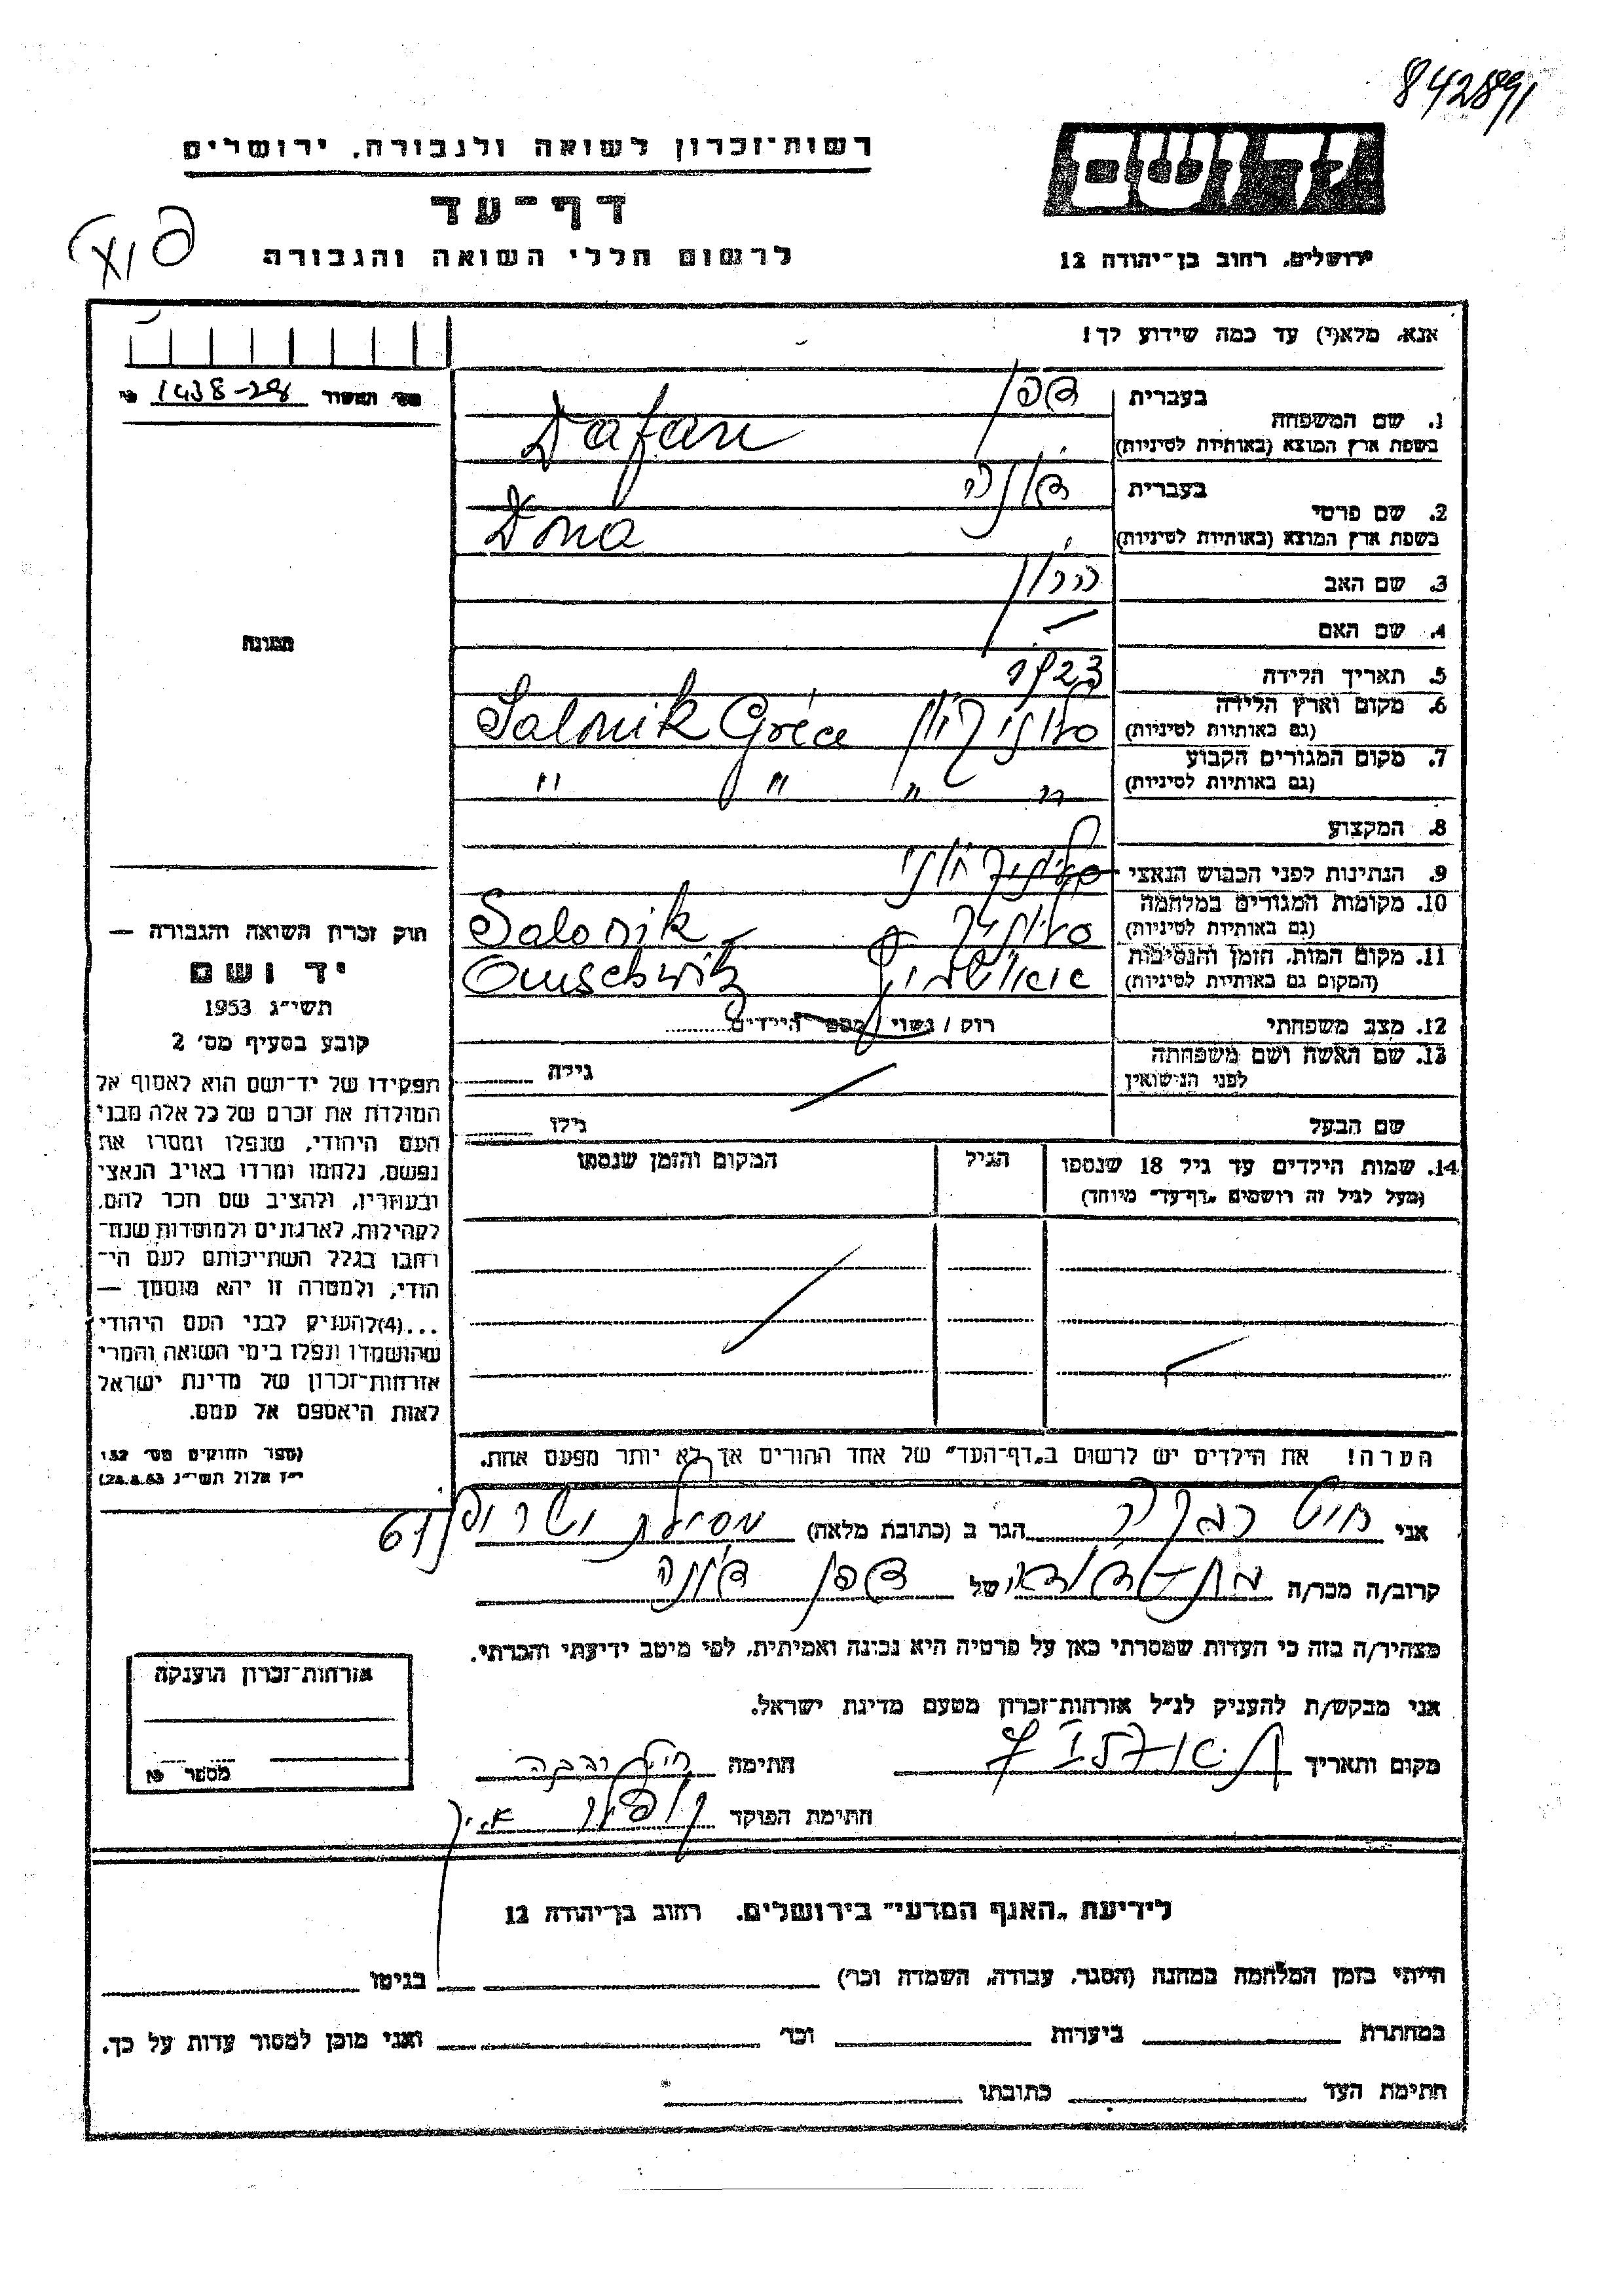 842891
רשות־זכרון לשואה ולגבורה, ירושלים
יד ושם
דף־עד
לרשום חללי השואה והגבורה
ירושלים, רחוב בן־יהודה 12
אנא, מלא(י) עד כמה שידוע לך!
מס׳ 1438-28
1. שם המשפחה
בעברית דפן
בשפת ארץ המוצא (באותיות לטיניות) Dafan
2. שם פרטי
בעברית דונה
בשפת ארץ המוצא (באותיות לטיניות) Dona
3. שם האב
4. שם האם –
תמונה
5. תאריך הלידה 1923
6. מקום וארץ הלידה
(גם באותיות לטיניות) סלוניק יון Salonik Gréce
7. מקום המגורים הקבוע
(גם באותיות לטיניות) " " " "
8. המקצוע
9. הנתינות לפני הכבוש הנאצי
10. מקומות המגורים במלחמה
(גם באותיות לטיניות) סלוניק Salonik
11. מקום המות, הזמן והנסיבות
(המקום גם באותיות לטיניות) אושויץ Ouschwitz
12. מצב משפחתי רוק / נשוי / מספר הילדים
13. שם האשה ושם משפחתה
לפני הנישואין גילה
שם הבעל גילו
14. שמות הילדים עד גיל 18 שנספו הגיל המקום והזמן שנספו
(מעל לגיל זה רושמים „דף־עד״ מיוחד)
הערה! את הילדים יש לרשום ב„דף־העד״ של אחד ההורים אך לא יותר מפעם אחת.
חוק זכרון השואה והגבורה —
יד ושם
תשי״ג 1953
קובע בסעיף מס׳ 2
תפקידו של יד־ושם הוא לאסוף אל
המולדת את זכרם של כל אלה מבני
העם היהודי, שנפלו ומסרו את
נפשם, נלחמו ומרדו באויב הנאצי
ובעוזריו, ולהציב שם וזכר להם,
לקהילות, לארגונים ולמוסדות שנח־
רבו בגלל השתייכותם לעם הי־
הודי, ולמטרה זו יהא מוסמך —
...(4) להעניק לבני העם היהודי
שהושמדו ונפלו בימי השואה והמרי
אזרחות־זכרון של מדינת ישראל
לאות היאספם אל עמם.
(ספר החוקים מס׳ 132
י״ז אלול תשי״ג 28.8.53)
אני רבקה הגר ב (כתובת מלאה) מסילת ישרים 67
קרוב/ה מכר/ה של דפן דונה
מצהיר/ה בזה כי העדות שמסרתי כאן על פרטיה היא נכונה ואמיתית, לפי מיטב ידיעתי והכרתי.
אני מבקש/ת להעניק לנ״ל אזרחות־זכרון מטעם מדינת ישראל.
מקום ותאריך תל אביב חתימה
חתימת הפוקד
אזרחות־זכרון הוענקה
מספר
לידיעת „האגף המדעי״ בירושלים, רחוב בן־יהודה 12
הייתי בזמן המלחמה במחנה (הסגר, עבודה, השמדה וכו׳) בגיטו
במחתרת ביערות וכו׳ ואני מוכן למסור עדות על כך.
חתימת העד כתובתו